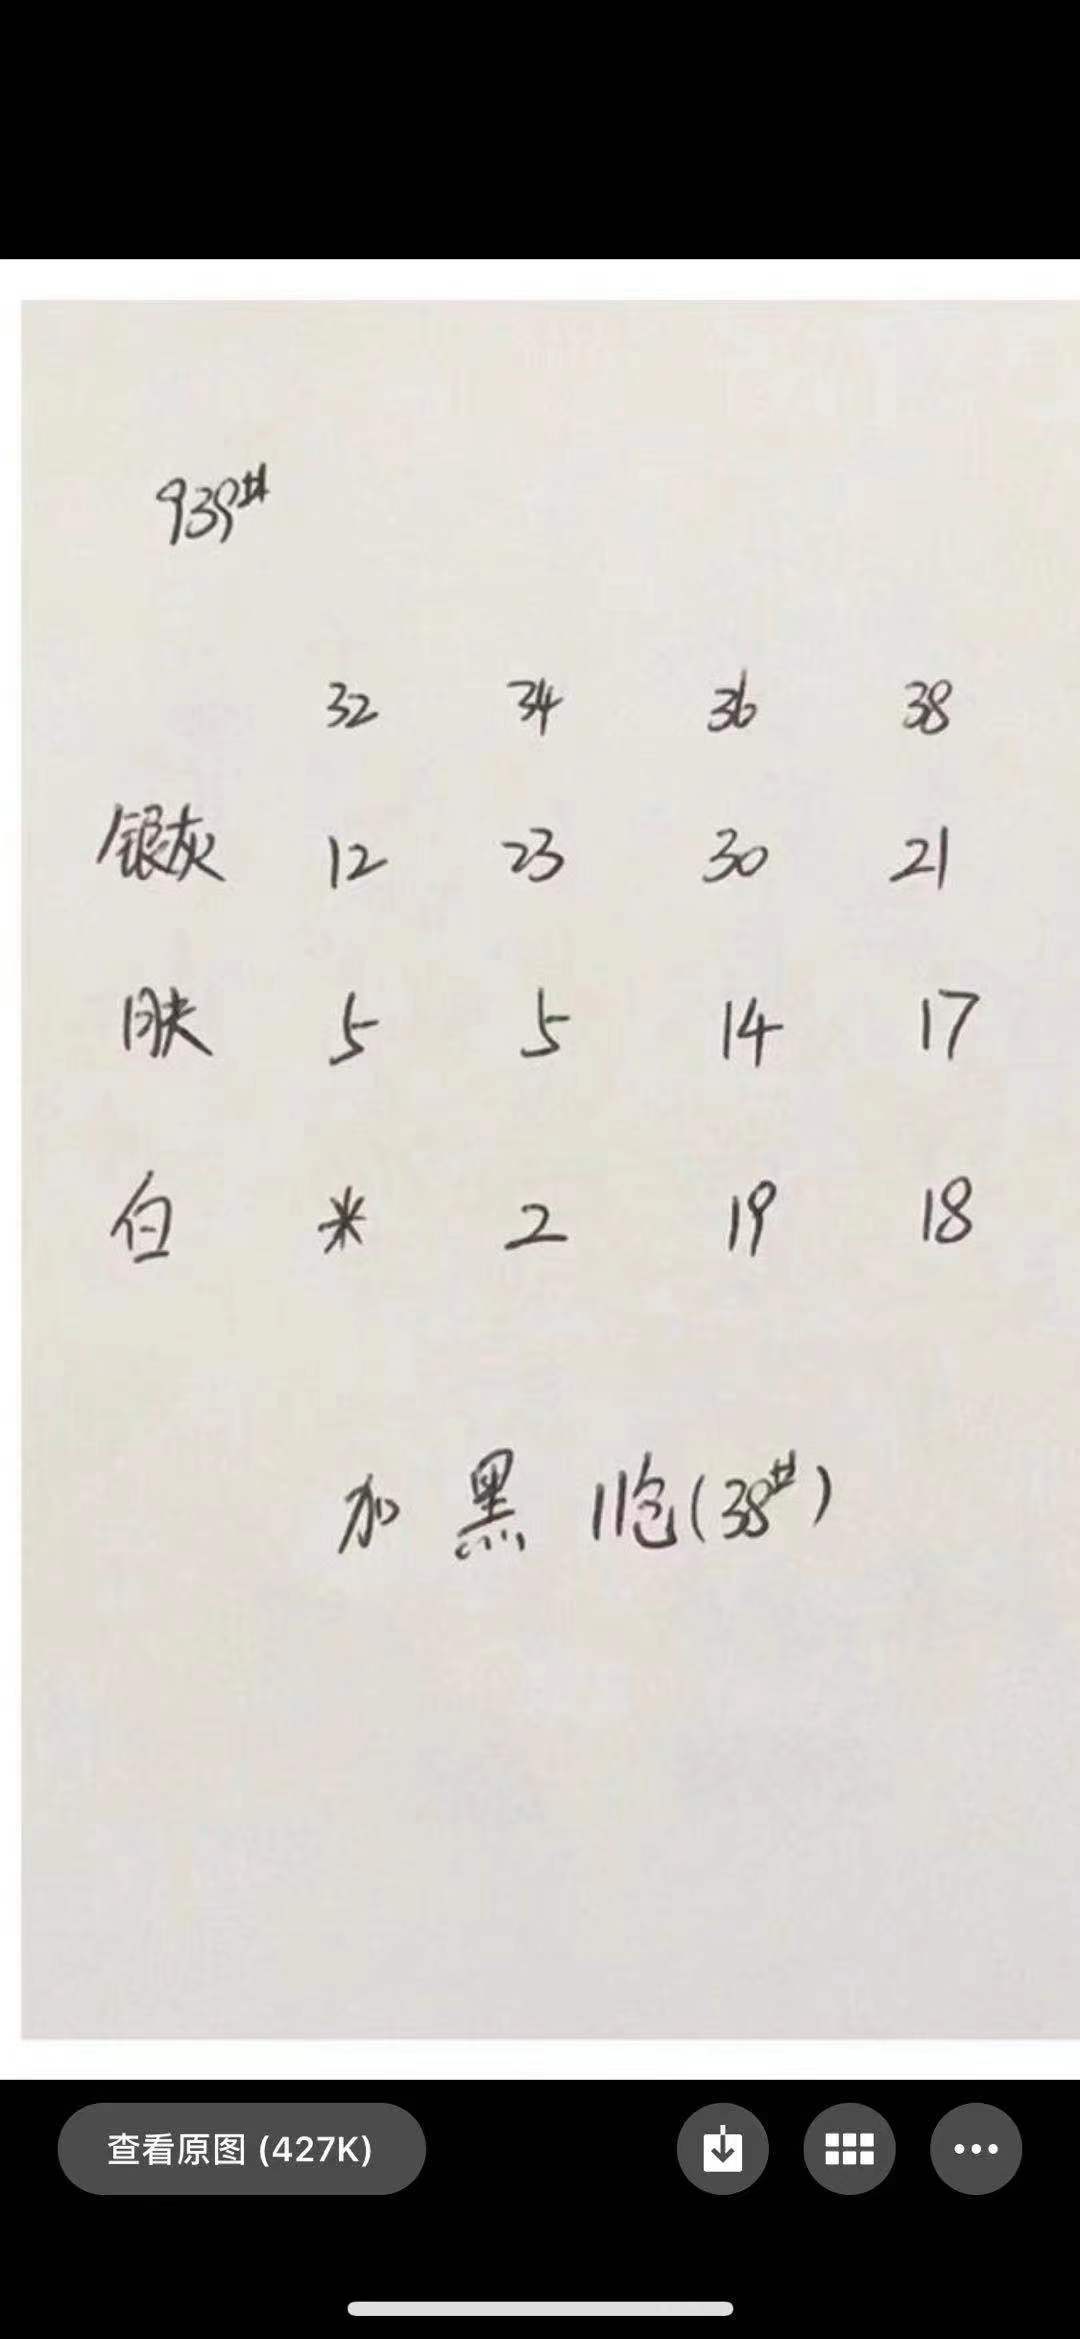 939#
32 34 36 38
银灰 12 23 30 21
肤 5 5 14 17
白 * 2 19 18
加 黑 (38#)
查看原图 (427K)